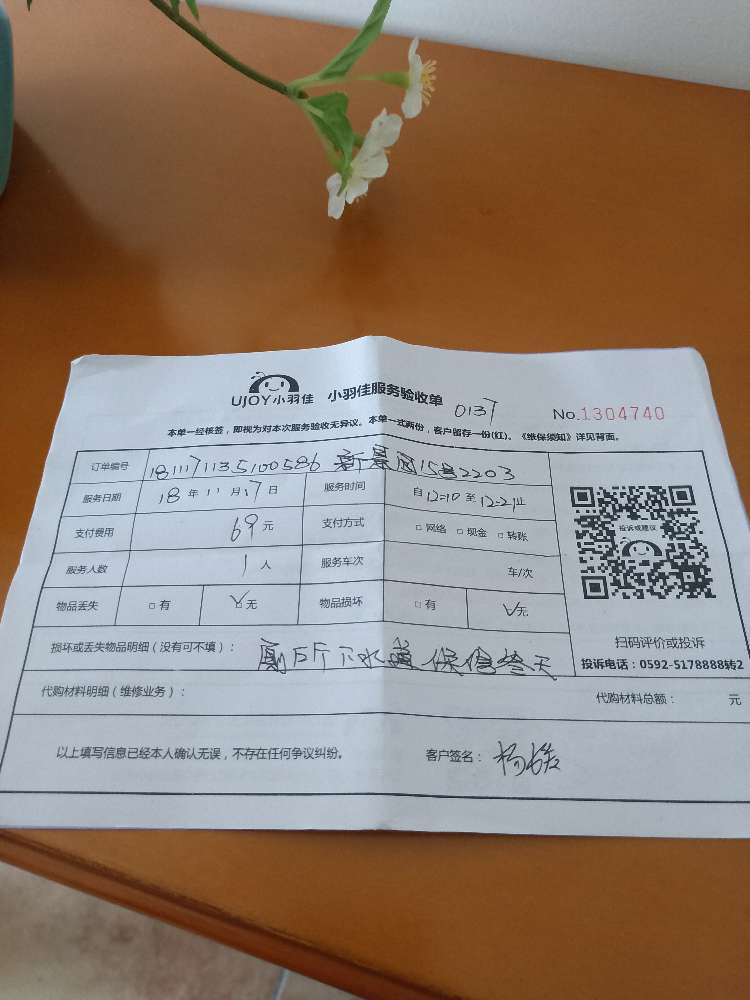 UJOY小羽佳 小羽佳服务验收单 0137 No.1304740
本单一经核签，即视为对本次服务验收无异议。本单一式两份，客户留存一份(红)。《维保须知》详见背面。
订单编号 1811171135100586 新景园15号2203
服务日期 18年11月17日 服务时间 自12=10至12=21止
支付费用 69元 支付方式 □网络 □现金 □转账
服务人数 1人 服务车次 车/次
物品丢失 □有 ☑无 物品损坏 □有 ☑无
投诉或建议
扫码评价或投诉
投诉电话：0592-5178888转2
损坏或丢失物品明细（没有可不填）： 厕所下水道保信叁天
代购材料明细（维修业务）： 代购材料总额： 元
以上填写信息已经本人确认无误，不存在任何争议纠纷。 客户签名：